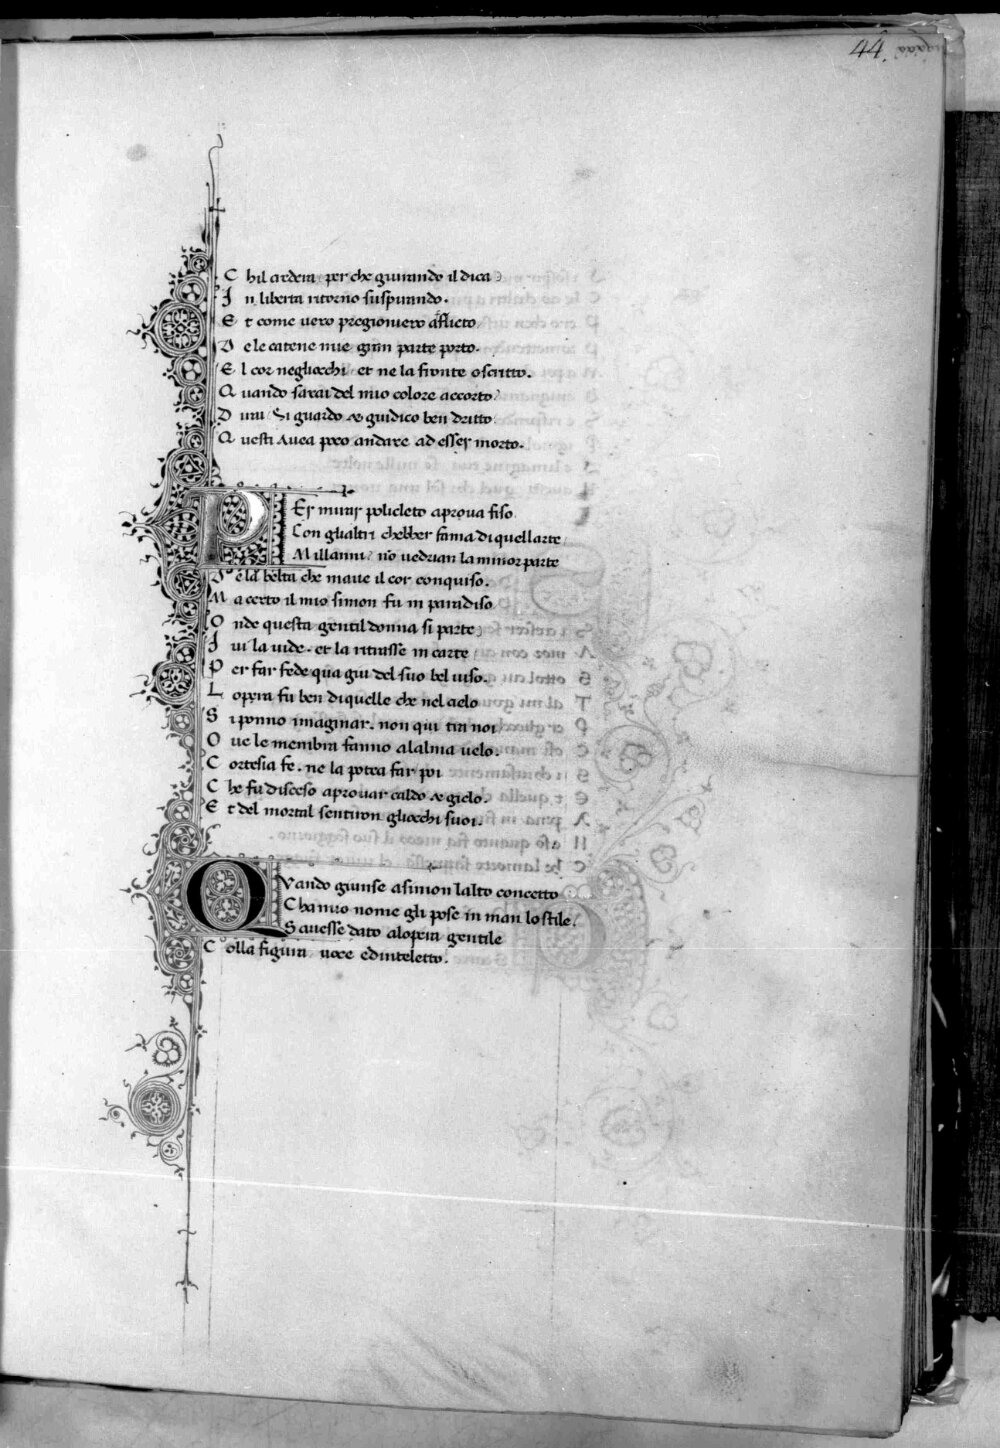 44.
C hil credera per che giurando il dica
I n liberta ritorno suspirando.
E t come uero pregioniero afflicto
D e le catene mie gran parte porto.
E l cor negliocchi et ne la fronte o scritto.
Q uando sarai del mio colore accorto
D irai Si guardo & guidico ben dritto
Q uesti Auea poco andare ad esser morto.
PEr mirar policleto aprova fiso
Con glialtri chebber fama di quellarte
Millanni no uedrian la minor parte
D e la belta che maue il cor conquiso.
M a certo il mio simon fu in paradiso
O nde questa gentil donna si parte
I ui la uide. et la ritrasse in carte
P er far fede qua giu del suo bel uiso.
L opera fu ben di quelle che nel cielo
S i ponno imaginar. non qui tra noi
O ue le membra fanno alalma uelo.
C ortesia fe. ne la potea far poi
C he fu disceso aprouar caldo & gielo.
E t del mortal sentiron gliocchi suoi.
QVando giunse asimon lalto concetto
Cha mio nome gli pose in man lo stile
Sauesse dato alopera gentile
C olla figura uoce edinteletto.